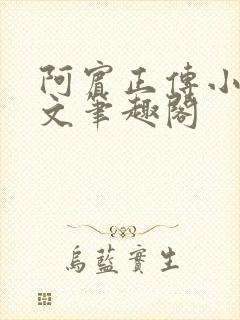 阿賓正傳小
文筆趣閣
烏藍實生